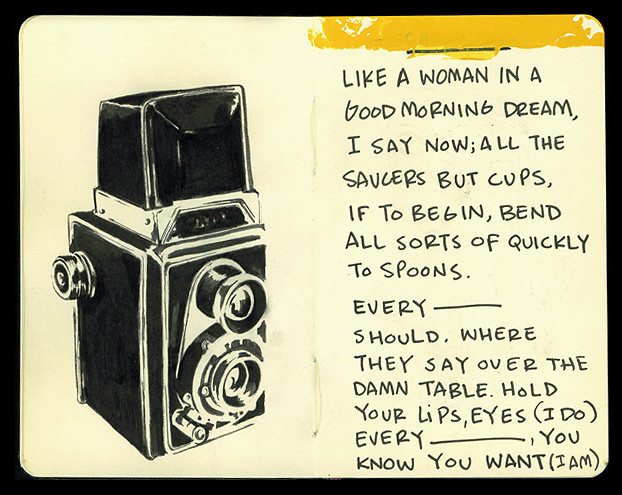 LIKE A WOMAN IN A
GOOD MORNING DREAM,
I SAY NOW; ALL THE
SAUCERS BUT CUPS,
IF TO BEGIN, BEND
ALL SORTS OF QUICKLY
TO SPOONS.
EVERY ______
SHOULD. WHERE
THEY SAY OVER THE
DAMN TABLE. HOLD
YOUR LIPS, EYES (I DO)
EVERY ______, YOU
KNOW YOU WANT (I AM)